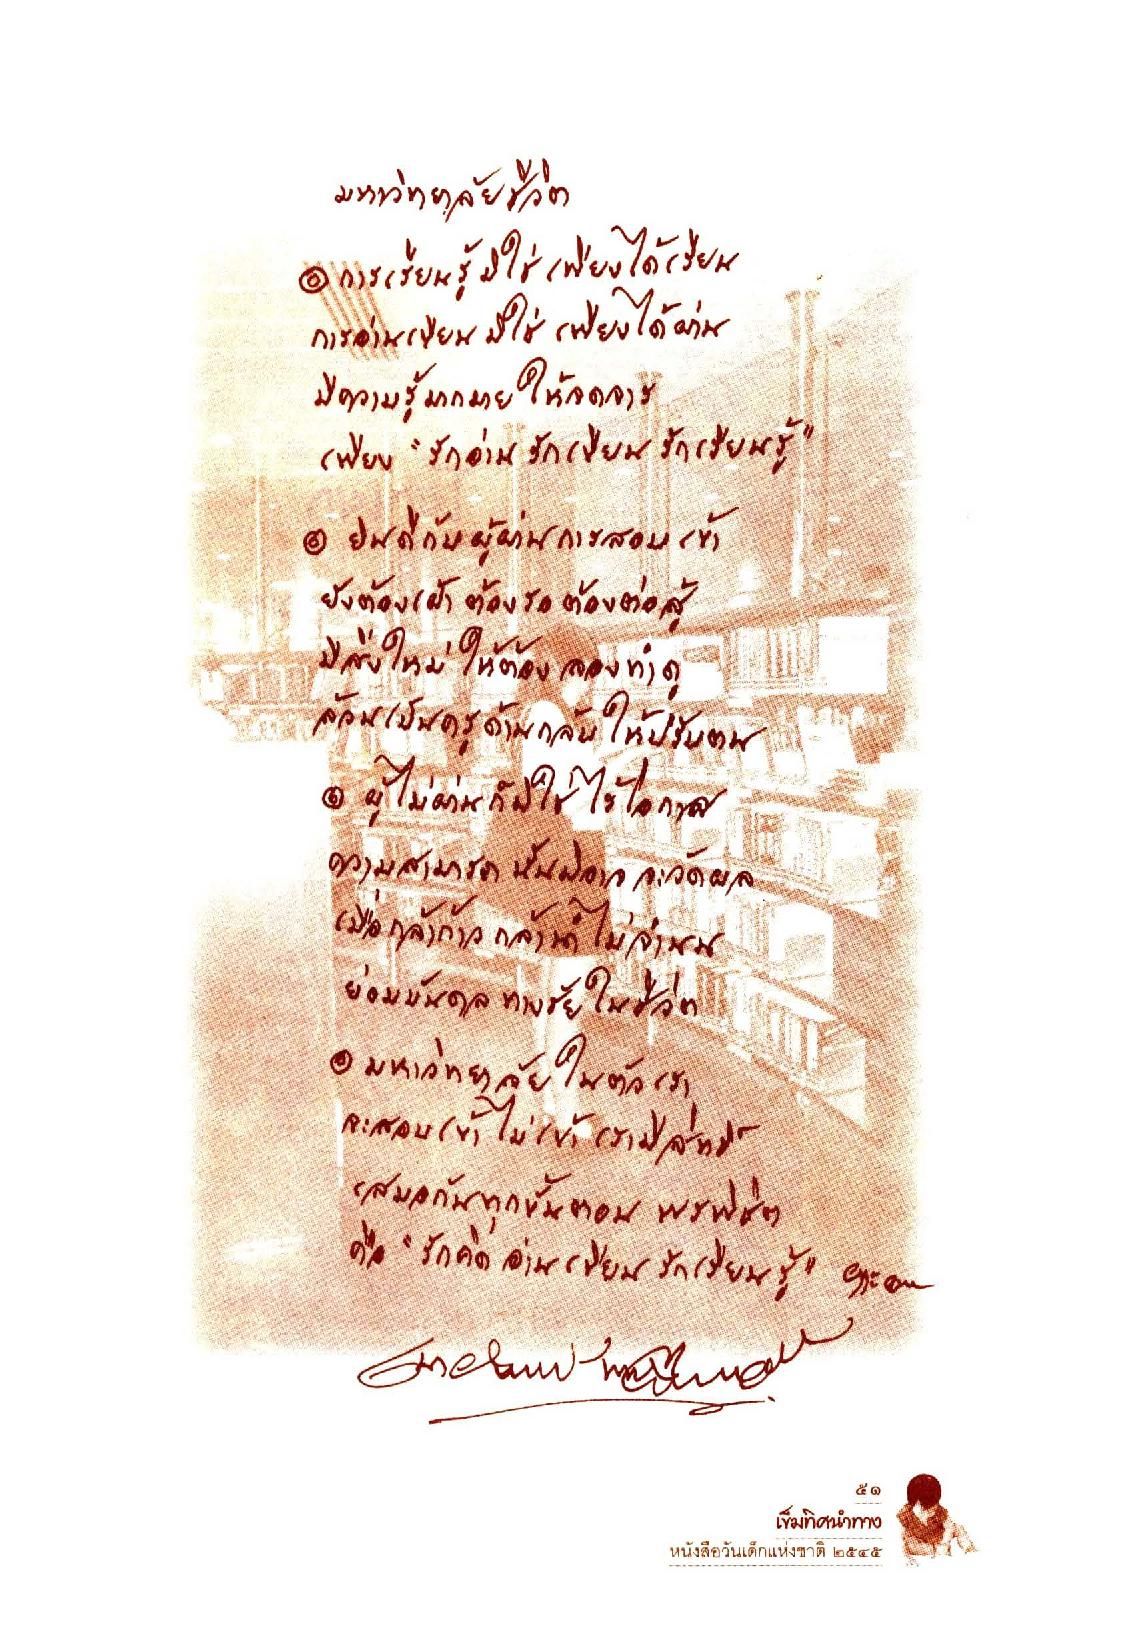 มหาวิทยาลัยชีวิต
๏ การเรียนรู้ มิใช่ เพียงได้เรียน
การอ่านเขียน มิใช่ เพียงได้ผ่าน
มีความรู้มากมาย ให้จดจาร
เพียง "รักอ่าน รักเขียน รักเรียนรู้"
๏ ยินดีกับผู้ผ่านการสอบเข้า
ยังต้องเฝ้า ต้องรอ ต้องต่อสู้
มีสิ่งใหม่ ให้ต้อง ลองทำดู
ล้วนเป็นครูด้านกลับ ให้ปรับตน
๏ ผู้ไม่ผ่าน ก็มิใช่ ไร้โอกาส
ความสามารถ นั้นมิอาจ จะวัดผล
เมื่อกล้าก้าว กล้านำ ไม่จำนน
ย่อมบันดล ทางชัย ในชีวิต
๏ มหาวิทยาลัย ในตัวเรา
จะสอบเข้า ไม่เข้า เรามีสิทธิ์
เสมอกันทุกขั้นตอน พรพิชิต
คือ "รักคิด อ่านเขียน รักเรียนรู้"
๕๑
เข็มทิศนำทาง
หนังสือวันเด็กแห่งชาติ ๒๕๔๕